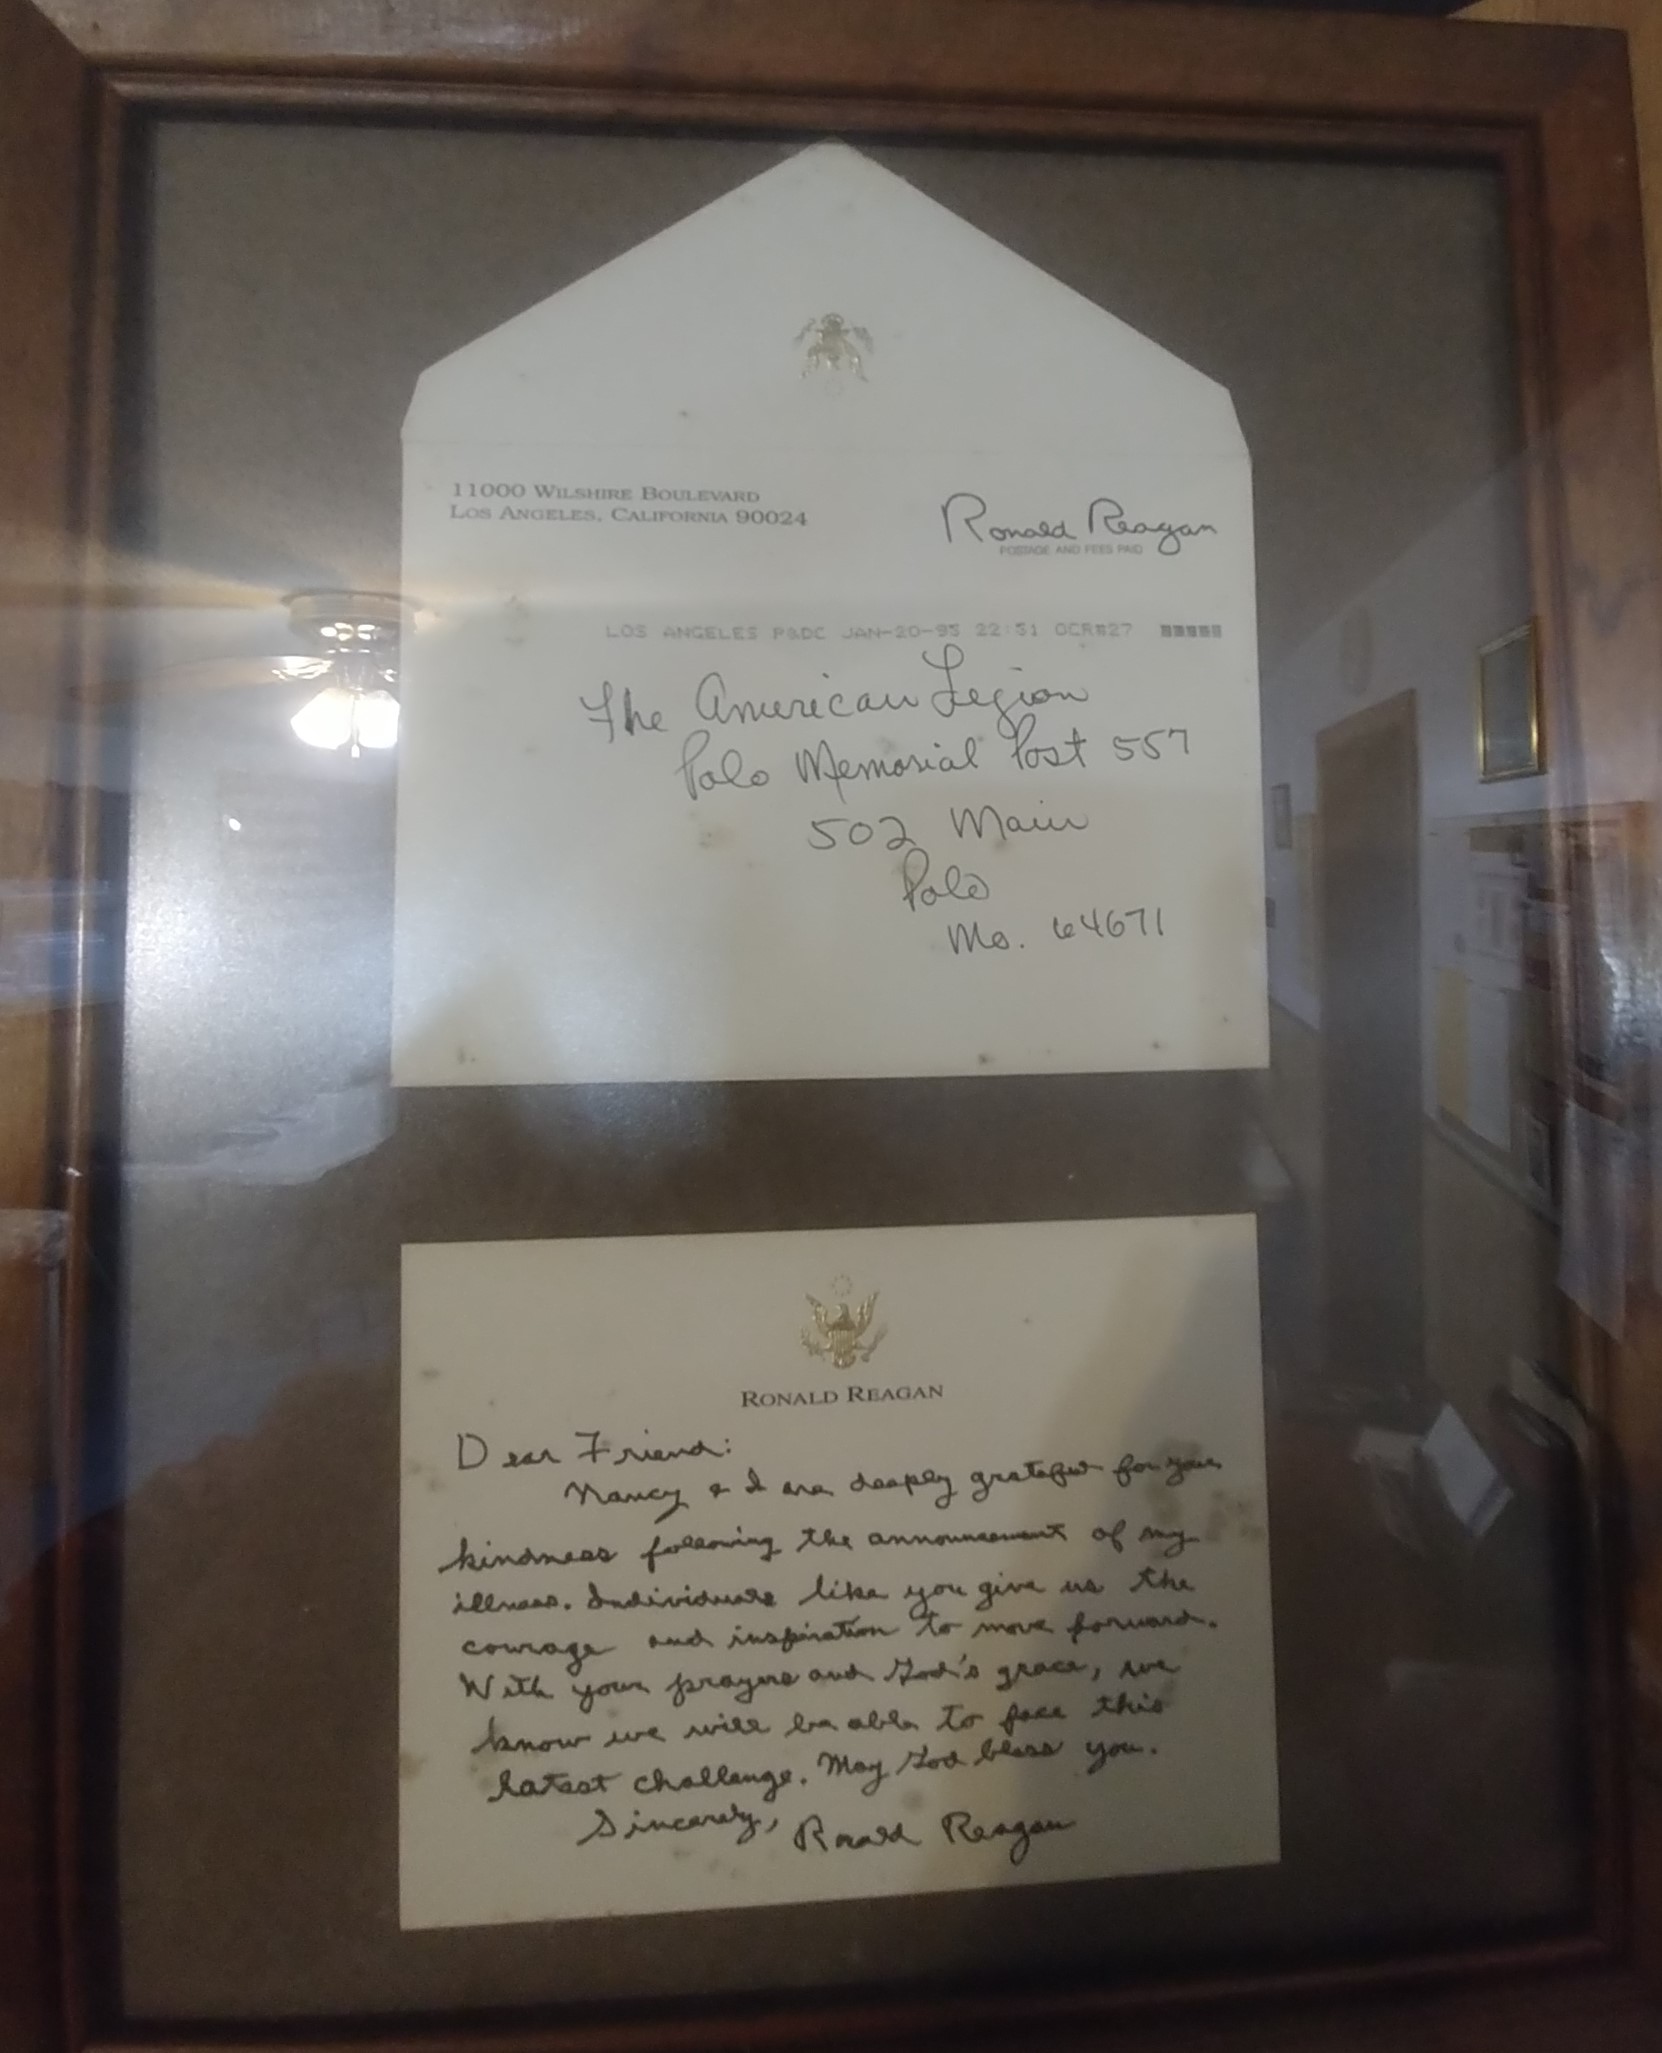 11000 WILSHIRE BOULEVARD
LOS ANGELES, CALIFORNIA 90024
Ronald Reagan
POSTAGE AND FEES PAID
LOS ANGELES P&DC JAN-20-95 22:51 OCR#27
The American Legion
Polo Memorial Post 557
502 Main
Polo
Mo. 64671
RONALD REAGAN
Dear Friend:
Nancy & I are deeply grateful for your
kindness following the announcement of my
illness. Individuals like you give us the
courage and inspiration to move forward.
With your prayers and God's grace, we
know we will be able to face this
latest challenge. May God bless you.
Sincerely, Ronald Reagan